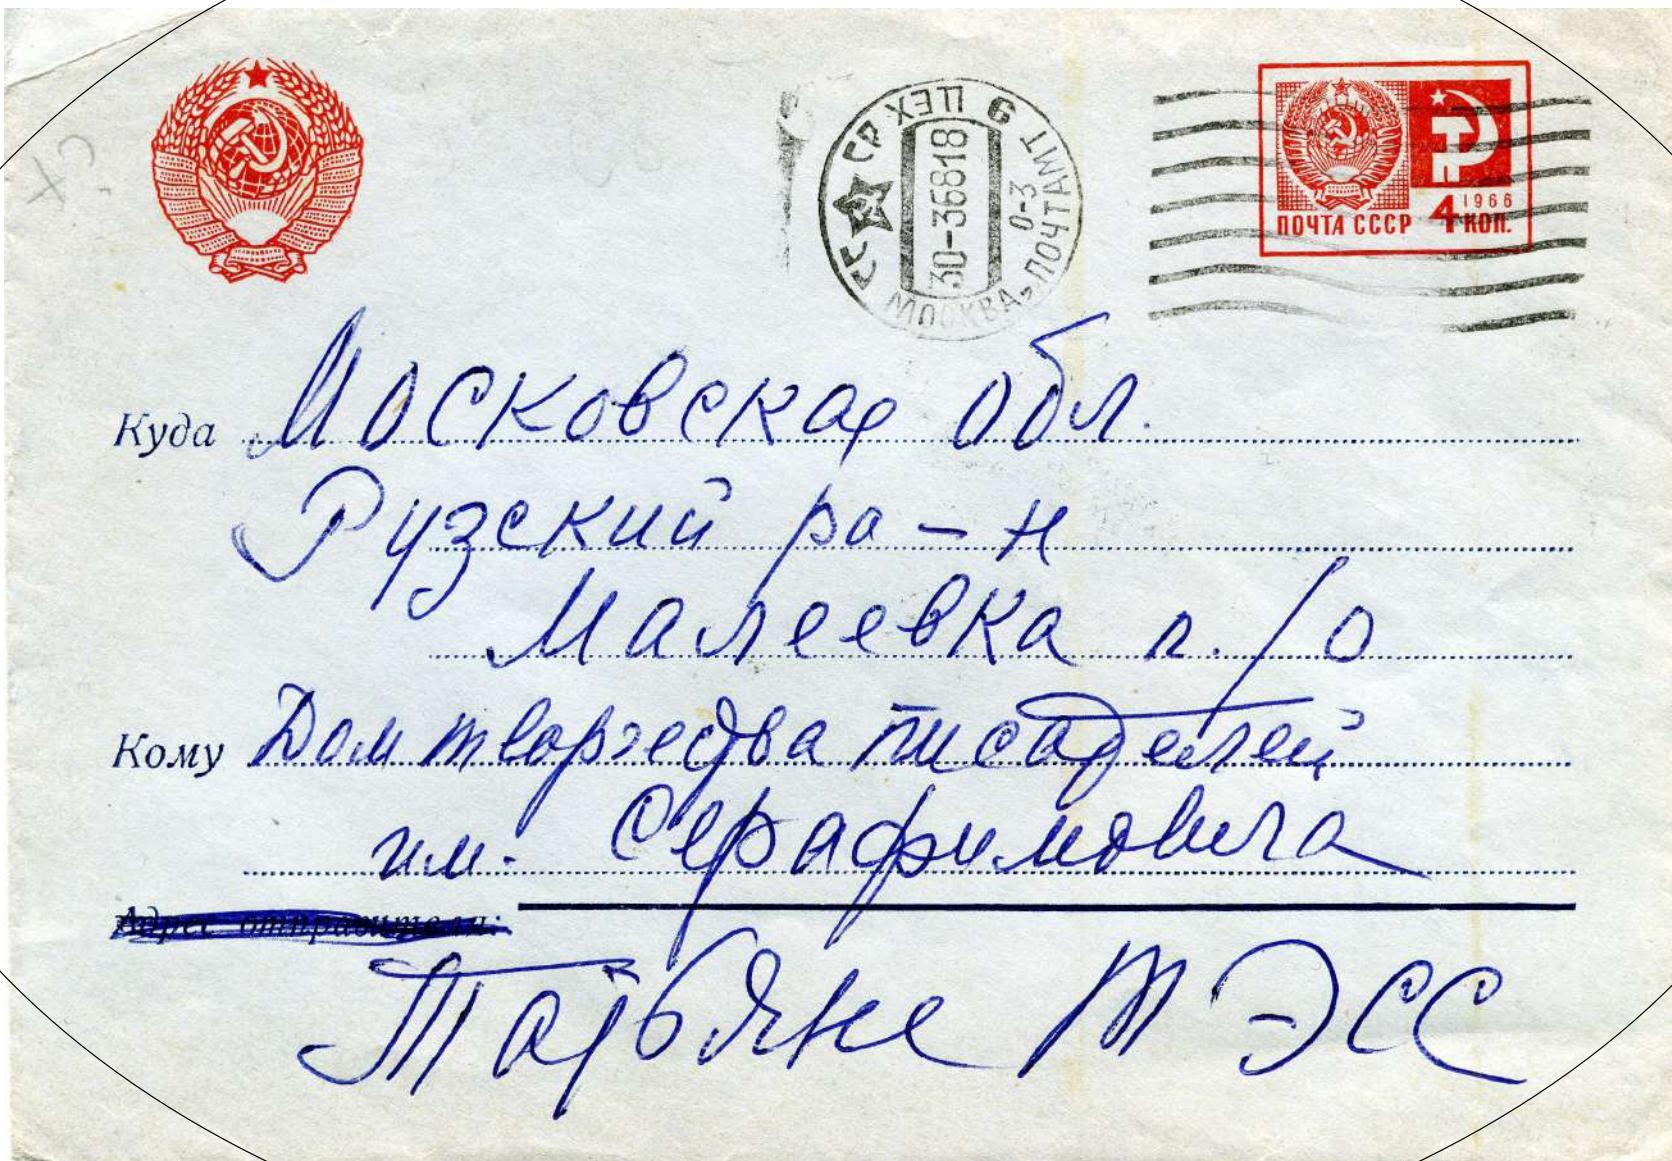 СССР ЦЕХ 9
30-36818
0-3
МОСКВА, ПОЧТАМТ
1966
ПОЧТА СССР 4 КОП.
Куда Московская обл.
Рузский ра-н
Малеевка п./о
Кому Дом творчества писателей
им. Серафимовича
Адрес отправителя:
Татьяне Тэсс